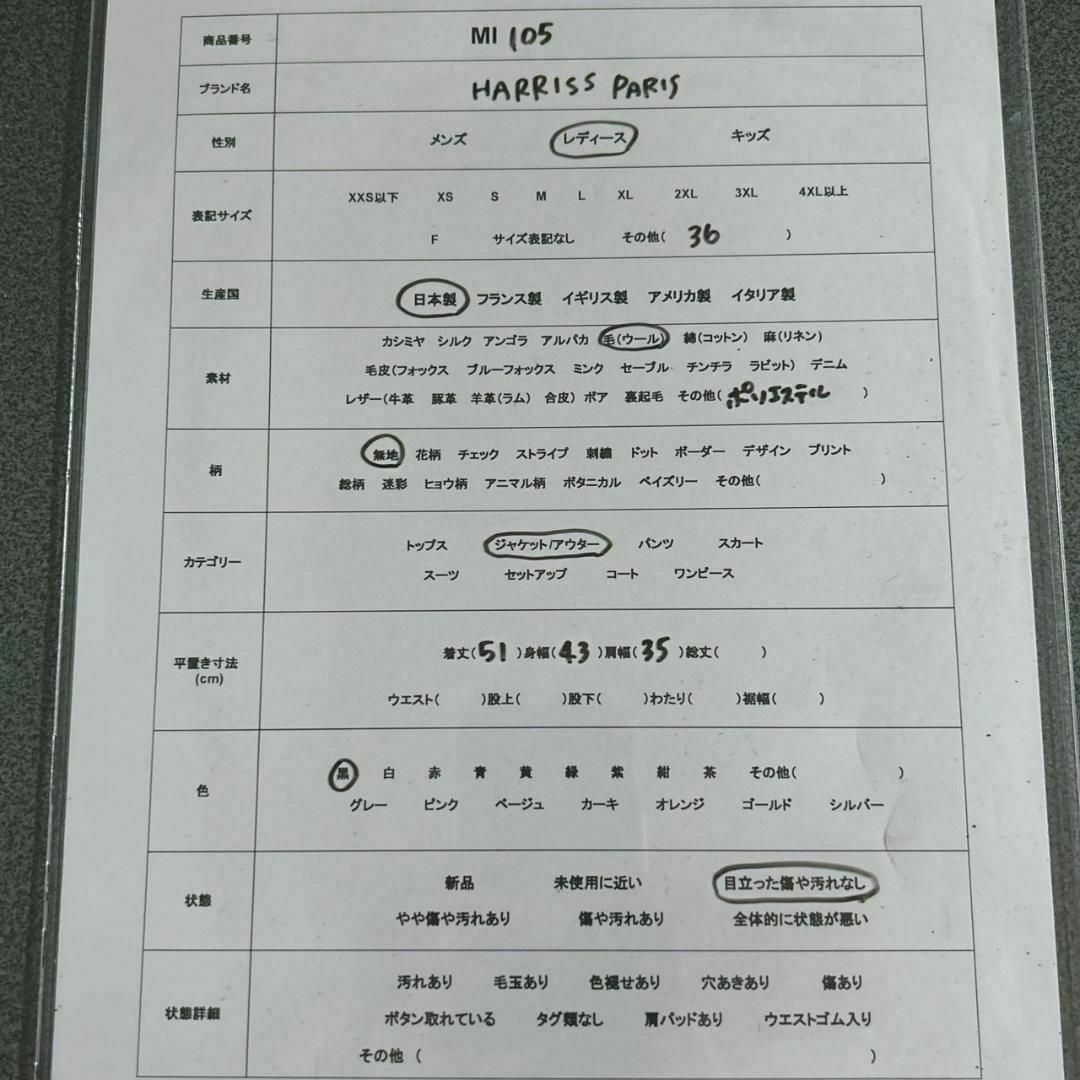 商品番号 MI 105
ブランド名 HARRISS PARIS
性別 メンズ レディース キッズ
表記サイズ XXS以下 XS S M L XL 2XL 3XL 4XL以上
F サイズ表記なし その他( 36 )
生産国 日本製 フランス製 イギリス製 アメリカ製 イタリア製
素材 カシミヤ シルク アンゴラ アルパカ 毛(ウール) 綿(コットン) 麻(リネン)
毛皮(フォックス ブルーフォックス ミンク セーブル チンチラ ラビット) デニム
レザー(牛革 豚革 羊革(ラム) 合皮) ボア 裏起毛 その他( ポリエステル )
柄 無地 花柄 チェック ストライプ 刺繍 ドット ボーダー デザイン プリント
総柄 迷彩 ヒョウ柄 アニマル柄 ボタニカル ペイズリー その他( )
カテゴリー トップス ジャケット/アウター パンツ スカート
スーツ セットアップ コート ワンピース
平置き寸法 (cm) 着丈( 51 )身幅( 43 )肩幅( 35 )総丈( )
ウエスト( )股上( )股下( )わたり( )裾幅( )
色 黒 白 赤 青 黄 緑 紫 紺 茶 その他( )
グレー ピンク ベージュ カーキ オレンジ ゴールド シルバー
状態 新品 未使用に近い 目立った傷や汚れなし
やや傷や汚れあり 傷や汚れあり 全体的に状態が悪い
状態詳細 汚れあり 毛玉あり 色褪せあり 穴あきあり 傷あり
ボタン取れている タグ類なし 肩パッドあり ウエストゴム入り
その他 ( )